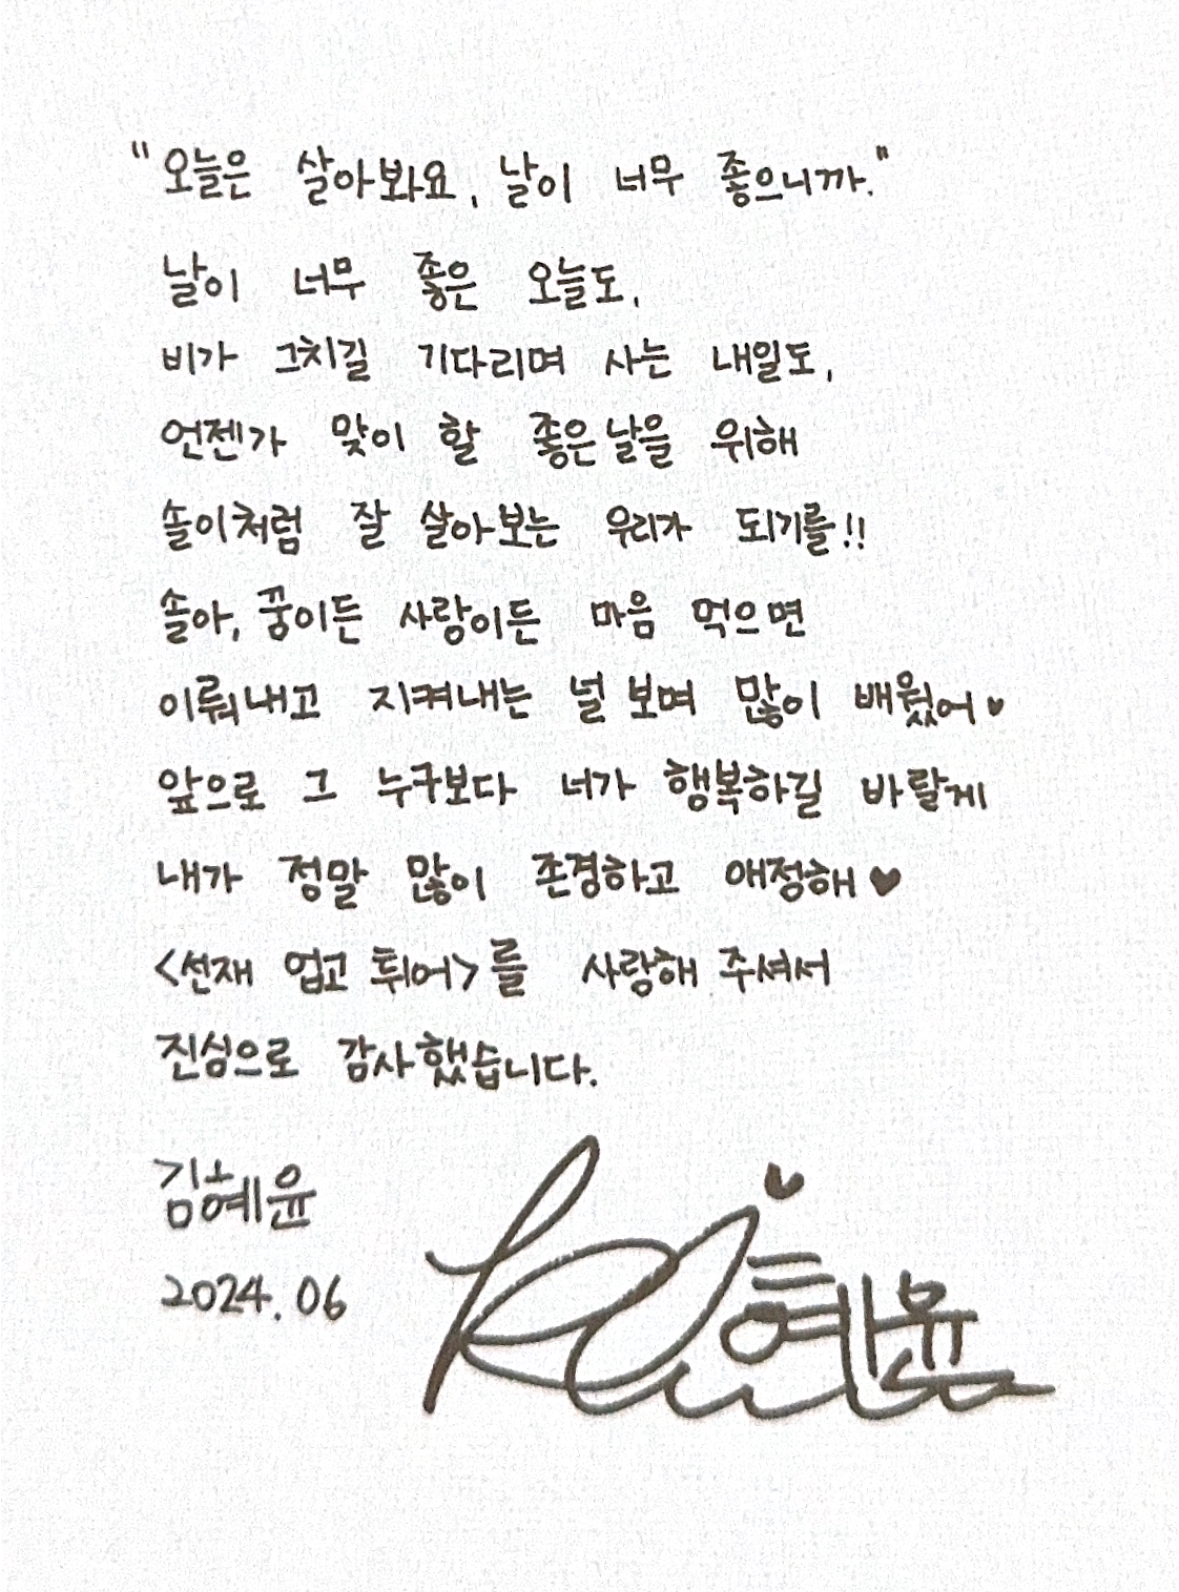 "오늘은 살아봐요, 날이 너무 좋으니까."
날이 너무 좋은 오늘도,
비가 그치길 기다리며 사는 내일도,
언젠가 맞이 할 좋은 날을 위해
솔이처럼 잘 살아보는 우리가 되기를!!
솔아, 꿈이든 사랑이든 마음 먹으면
이뤄내고 지켜내는 널 보며 많이 배웠어♥
앞으로 그 누구보다 너가 행복하길 바랄게
내가 정말 많이 존경하고 애정해♥
<선재 업고 튀어>를 사랑해 주셔서
진심으로 감사했습니다.
김혜윤
2024.06
혜윤